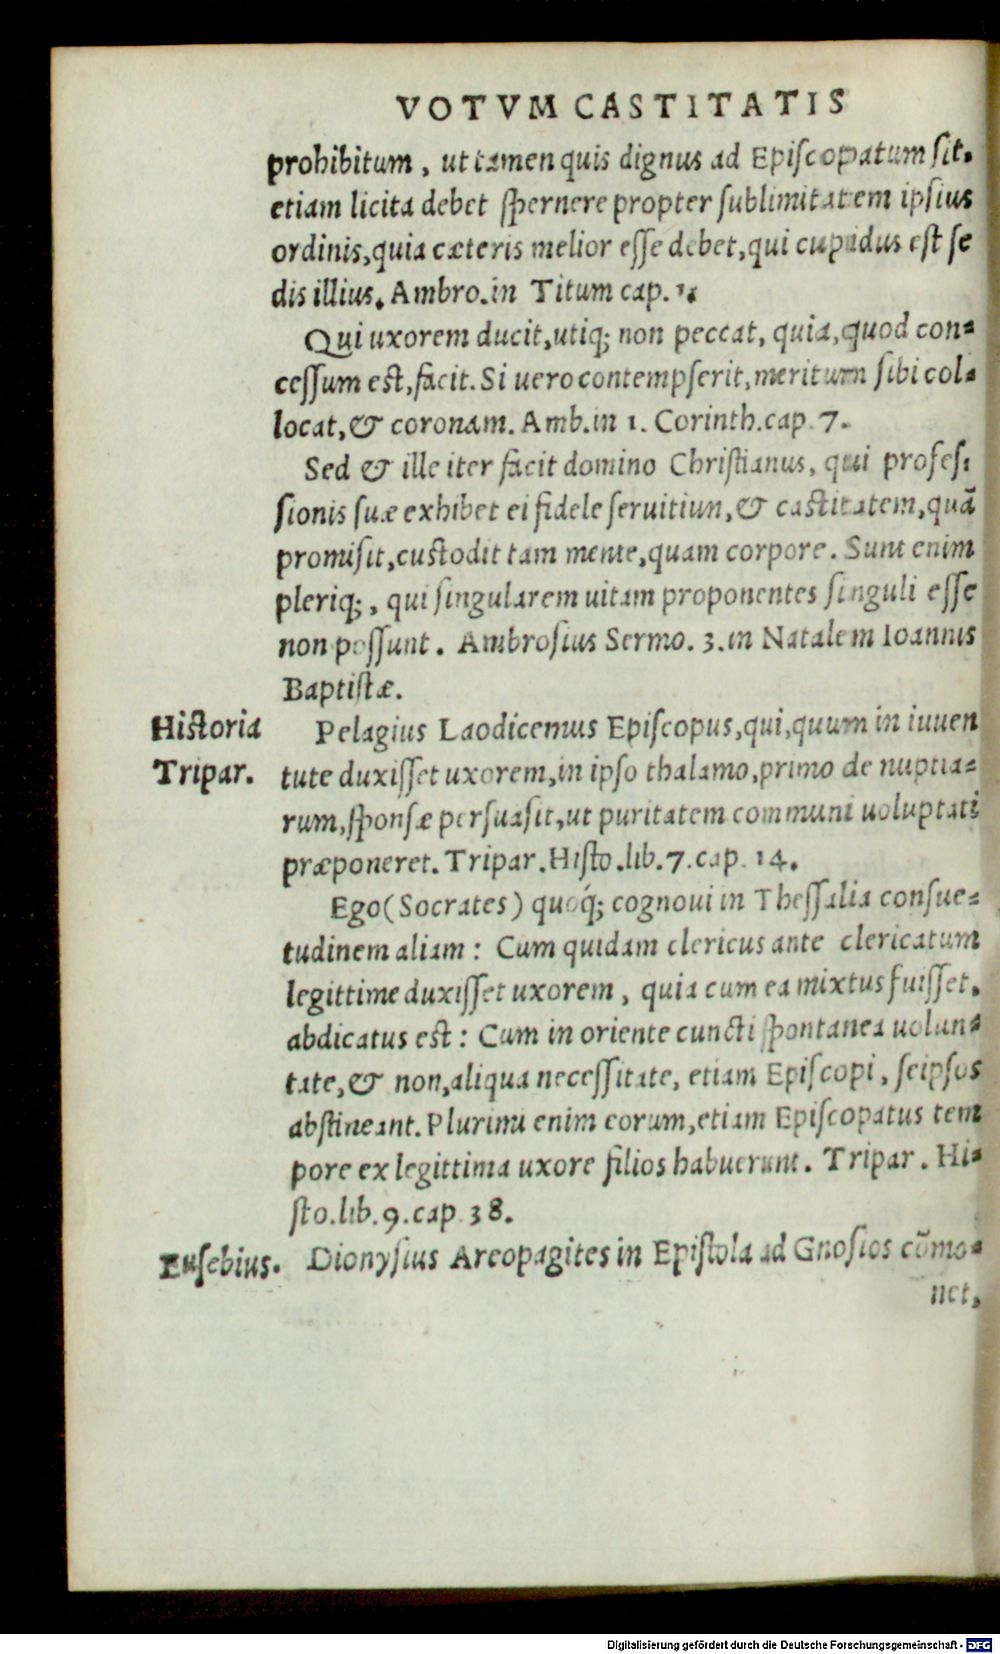 VOTVM CASTITATIS
prohibitum, ut tamen quis dignus ad Episcopatum sit.
etiam licita debet spernere propter sublimitatem ipsius
ordinis, quia cæteris melior esse debet, qui cupidus est se
dis illius. Ambro. in Titum cap. 1.
Qui uxorem ducit, utiq; non peccat, quia, quod con-
cessum est, facit. Si uero contempserit, meritum sibi col-
locat, & coronam. Amb. in 1. Corinth. cap. 7.
Sed & ille iter facit domino Christianus, qui profes-
sionis suæ exhibet ei fidele seruitiun, & castitatem, quā
promisit, custodit tam mente, quam corpore. Sunt enim
pleriq;, qui singularem uitam proponentes singuli esse
non possunt. Ambrosius Sermo. 3. in Natalem Ioannis
Baptistæ.
Historia
Tripar.
Pelagius Laodicenus Episcopus, qui, quum in iuuen
tute duxisset uxorem, in ipso thalamo, primo de nuptia-
rum, sponsæ persuasit, ut puritatem communi uoluptati
præponeret. Tripar. Histo. lib. 7. cap. 14.
Ego (Socrates) quoq́; cognoui in Thessalia consue-
tudinem aliam: Cum quidam clericus ante clericatum
legittime duxisset uxorem, quia cum ea mixtus fuisset.
abdicatus est: Cum in oriente cuncti spontanea uolun-
tate, & non, aliqua necessitate, etiam Episcopi, seipsos
abstineant. Plurimi enim eorum, etiam Episcopatus tem
pore ex legittima uxore filios habuerunt. Tripar. Hi-
sto. lib. 9. cap. 38.
Eusebius.
Dionysius Areopagites in Epistola ad Gnosios cōmo-
net,
Digitalisierung gefördert durch die Deutsche Forschungsgemeinschaft - DFG